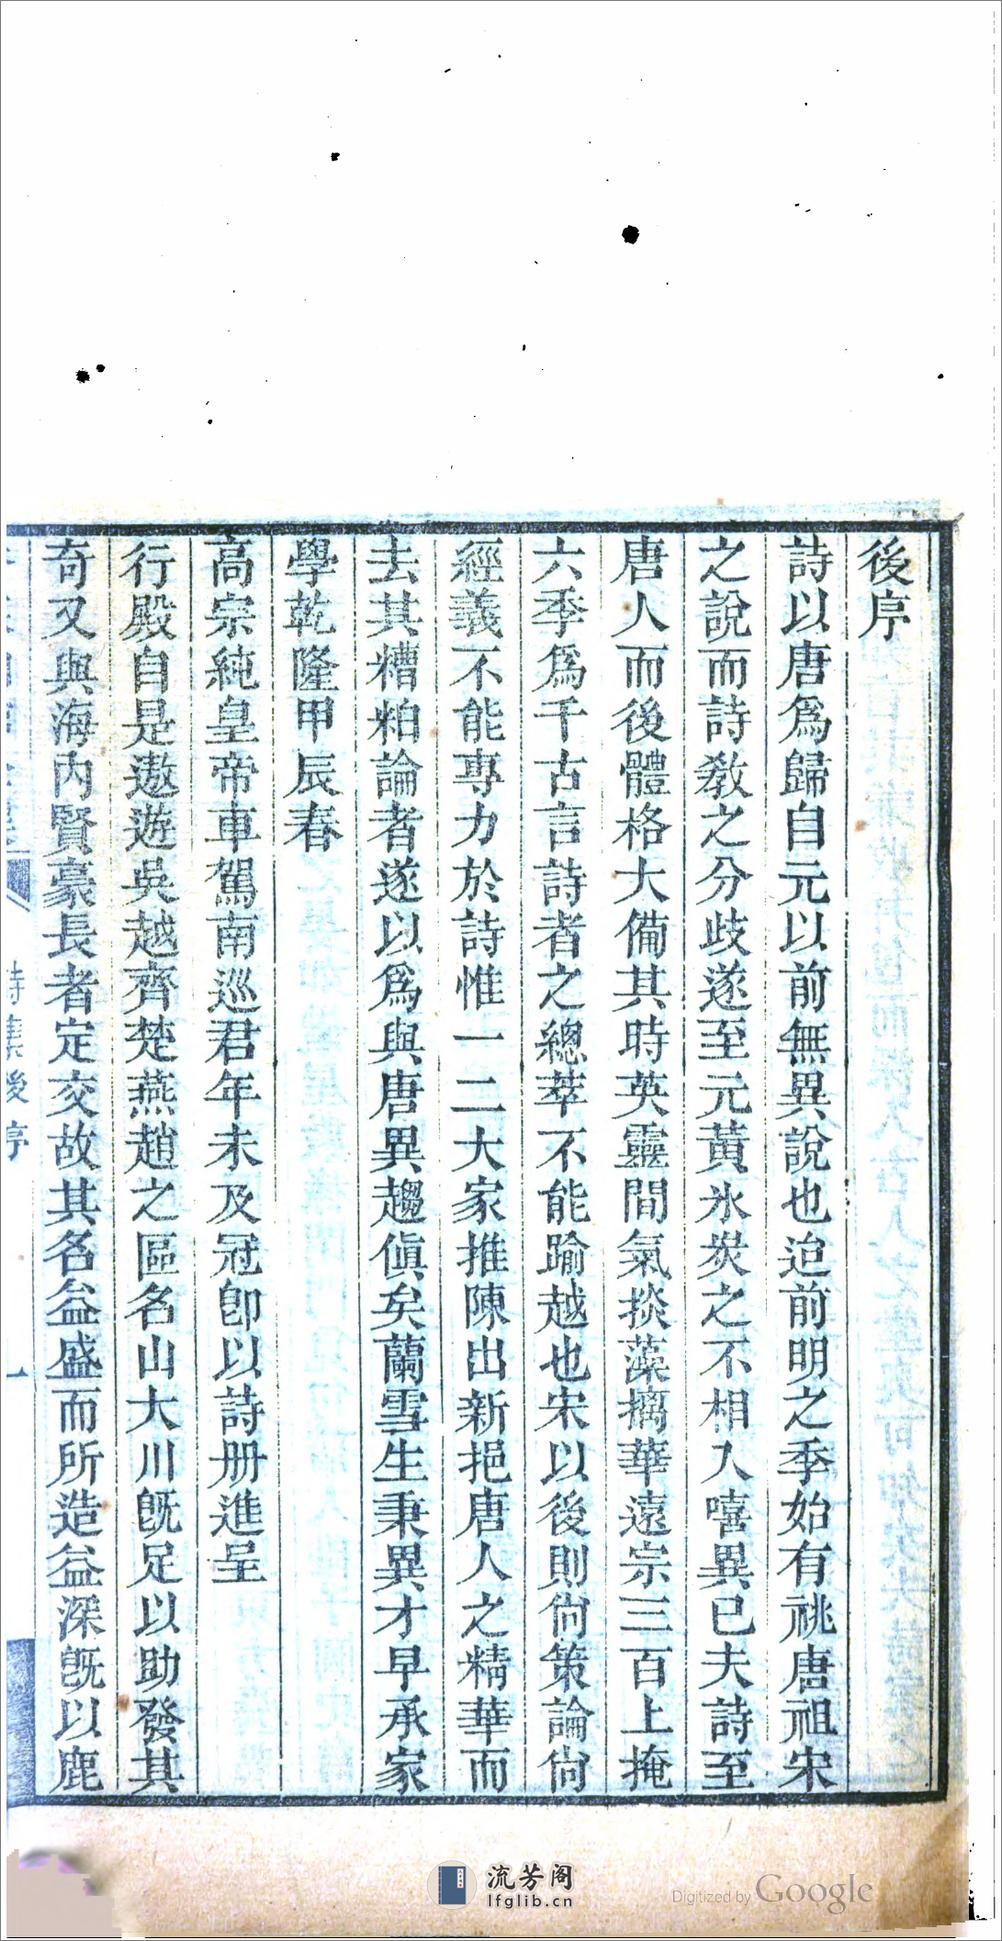 後序
詩以唐爲歸自元以前無異說也迨前明之季始有祧唐祖宋
之說而詩教之分歧遂至元黃氷炭之不相入嘻異已夫詩至
唐人而後體格大備其時英靈間氣掞藻摛華遠宗三百上掩
六季爲千古言詩者之總萃不能踰越也宋以後則尙策論尙
經義不能專力於詩惟一二大家推陳出新挹唐人之精華而
去其糟粕論者遂以爲與唐異趨傎矣蘭雪生秉異才早承家
學乾隆甲辰春
高宗純皇帝車駕南巡君年未及冠卽以詩册進呈
行殿自是遨遊吳越齊楚燕趙之區名山大川旣足以助發其
奇又與海內賢豪長者定交故其名益盛而所造益深旣以鹿
詩集後序
一
流芳阁
lfglib.cn
Digitized by Google